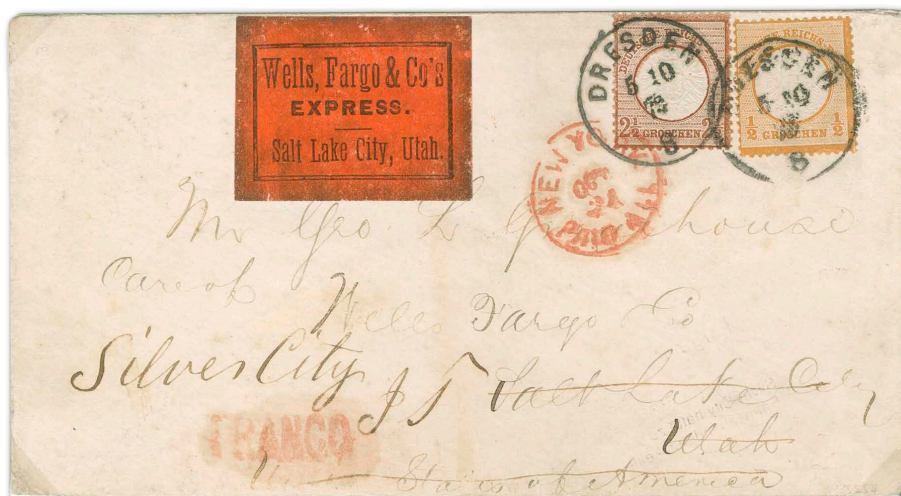 Wells, Fargo & Co's
EXPRESS.
Salt Lake City, Utah.
DRESDEN
5 10
8
DEUTSCHE REICHS
2½ GROSCHEN 2½
DRESDEN
10
8
REICHS
½ GROSCHEN ½
NEW YO
OCT
24
PAID ALL
Mr Geo. L Greenhouse
Care of
Wells Fargo Co
Silver City I T Salt Lake City
Utah
FRANCO
States of America